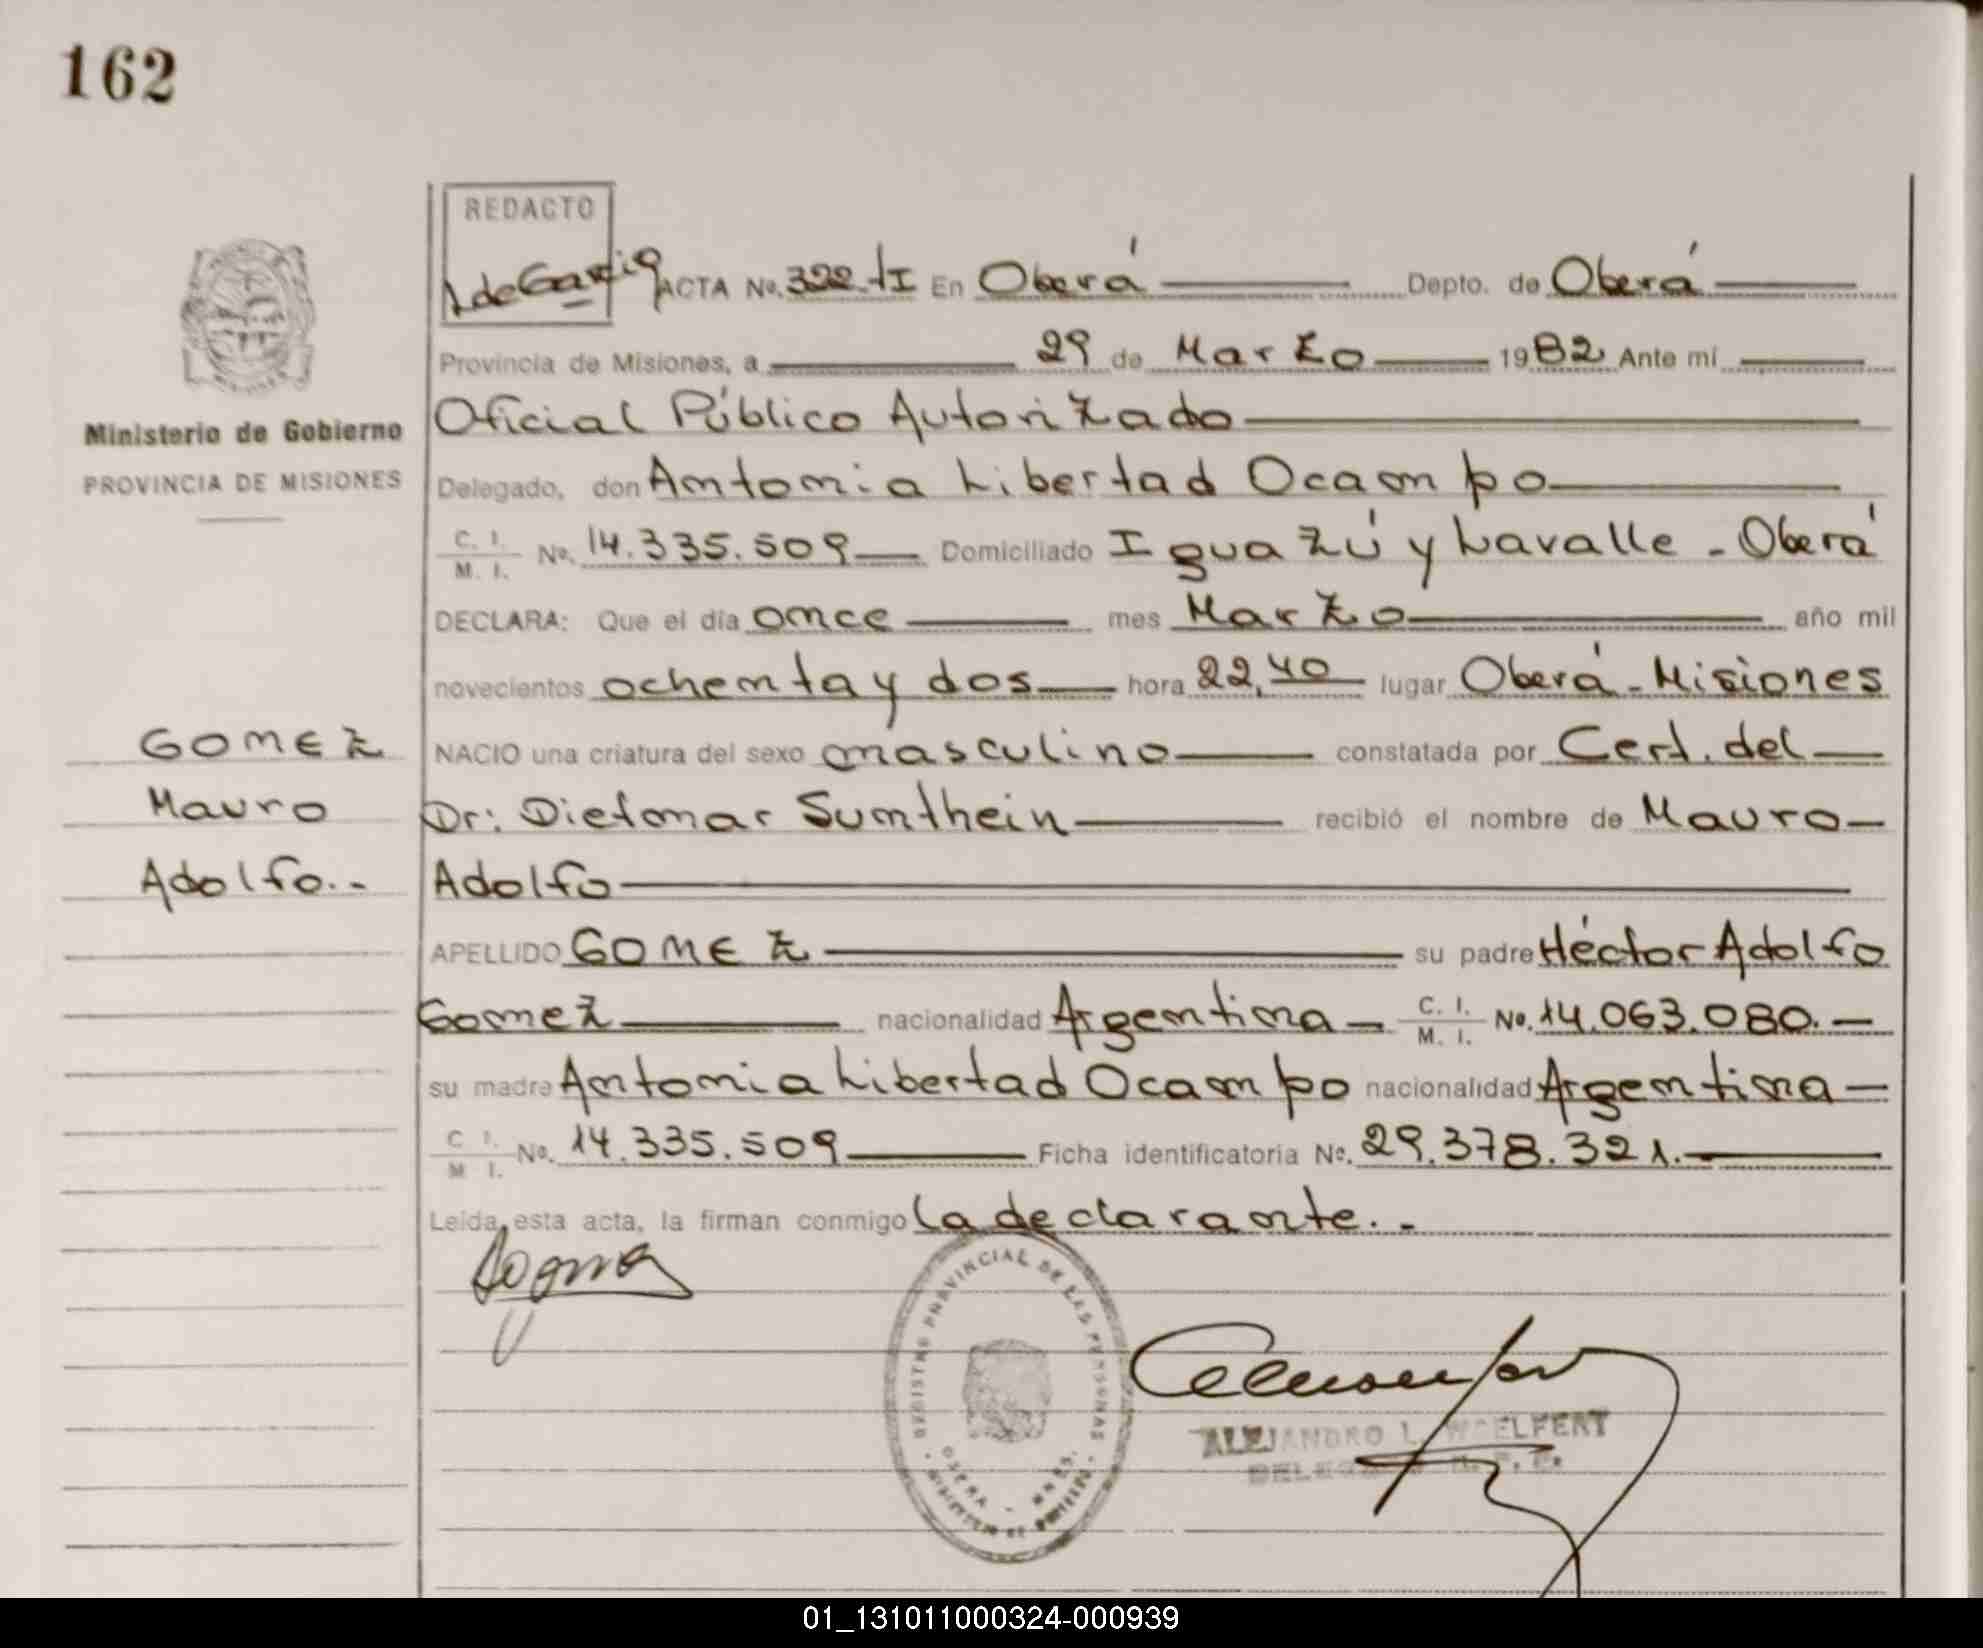 162
REDACTO
ACTA No. 322-tI En Oberá Depto. de Oberá
Provincia de Misiones, a 29 de Marzo 1982 Ante mí
Ministerio de Gobierno
PROVINCIA DE MISIONES
Oficial Público Autorizado
Delegado, don Antonia Libertad Ocampo
C. I. M. I. No. 14.335.509 Domiciliado Iguazú y Lavalle - Oberá
DECLARA: Que el día once mes Marzo año mil
novecientos ochenta y dos hora 22,40 lugar Oberá - Misiones
GOMEZ
Mauro
Adolfo.-
NACIO una criatura del sexo masculino constatada por Cert. del
Dr: Dietmar Sumthein recibió el nombre de Mauro
Adolfo
APELLIDO GOMEZ su padre Héctor Adolfo
Gomez nacionalidad Argentina C. I. M. I. No. 14.063.080.
su madre Antonia Libertad Ocampo nacionalidad Argentina
C I. M I. No. 14.335.509 Ficha identificatoria No. 29.378.321.
Leída esta acta, la firman conmigo la declarante.-
REGISTRO PROVINCIAL DE LAS PERSONAS
OBERA - MNES.
ALEJANDRO L. WOELFERT
01_131011000324-000939